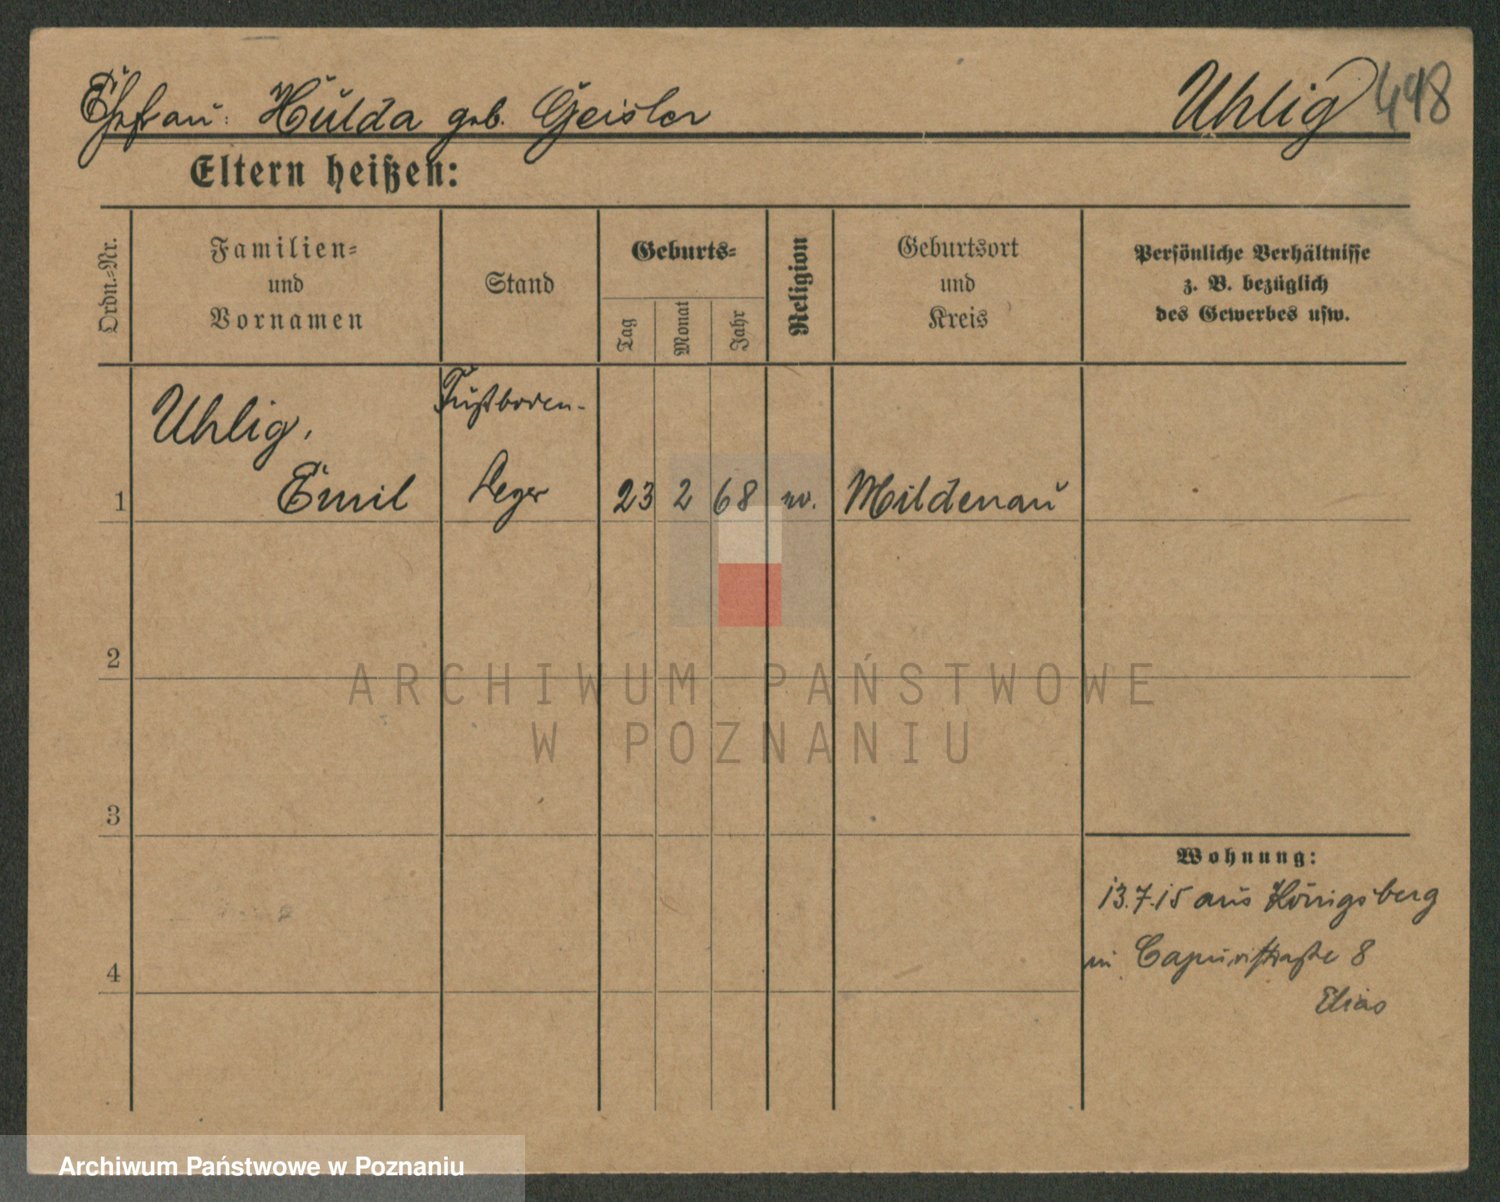 Ehefrau: Hulda geb. Geisler
Uhlig 448
Eltern heißen:
Ordn.=Nr.
Familien=
und
Vornamen
Stand
Geburts=
Tag
Monat
Jahr
Religion
Geburtsort
und
Kreis
Persönliche Verhältnisse
z. B. bezüglich
des Gewerbes usw.
Uhlig,
Fußboden-
1 Emil leger 23 2 68 ev. Mildenau
2
ARCHIWUM PAŃSTWOWE
W POZNANIU
3
Wohnung:
13.7.15 aus Königsberg
4
8
Elias
Archiwum Państwowe w Poznaniu